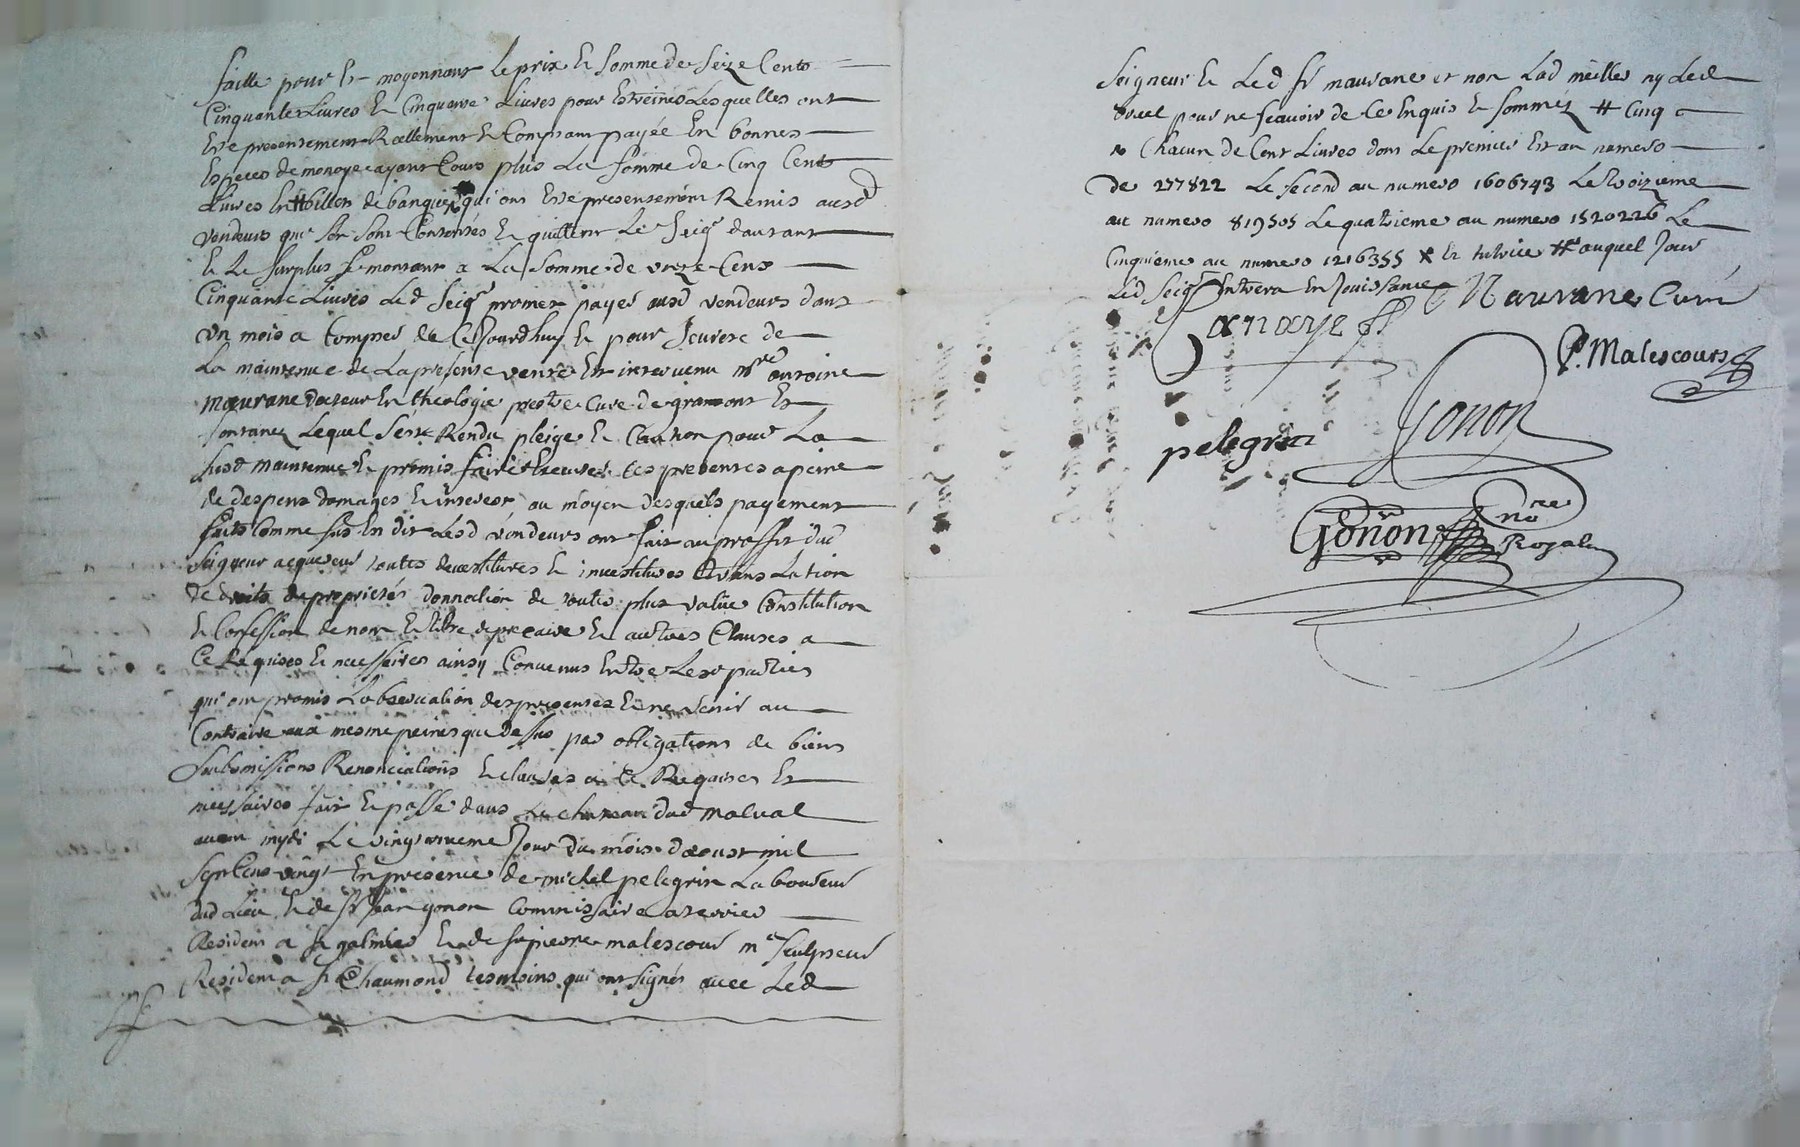 faitte pour et moyennant le prix et somme de seize Cents
Cinquante Livres et Cinquante Livres pour estreines Lesquelles ont
este presentement Reellement et Comptant payée En bonnes
Especes de monoye ayant Cours plus La somme de Cinq Cent
Livres En # billets de banque qui ont este presentement Remis ausd
vendeurs qui son sont Contentés et quittent Le Seigr dautant
et Le surplus se montant a La somme de onze Cens
Cinquante Livres Led Seigr promet payer ausd vendeurs dans
un mois a Compter de Cejourdhuy et pour seureté de
La maintenue de La presente vente Est intervenu mre antoine
maurane docteur En theologie prestre Curé de gramont Et
fontanez Lequel sest Rendu pleige et Caution pour La
susd maintenue et promis faire et executer Les presentes a peine
de despens domages et interest, au moyen desquels payement
faits Comme sus En dit Lesd vendeurs ont fait au proffit dud
Seigneur acquereur toutes devestitures et investitures translation
de droits de proprietés donnation de toute plus value Constitution
et Confession de nom et titre de precaire et autres Clauses a
Ce Requises et necessaires ainsy Convenus Entre Lesd parties
qui ont promis Lobservation des presentes et ne venir au
Contraire aux mesme peines que dessus par obligations de biens
Soubmissions Renonciations et clauses a Ce Requises Et
necessaires fait et passé dans Le chateau dud malval
avant mydi Le vingt jour du mois daoust mil
Sept Cens vingt En presence de michel pelegrin Laboureur
dud Lieu et de sr Jean gonon Commissaire a terrier
Resident a St galmier et de sr pierre malescour me sculpteur
Resident a St Chaumond tesmoins qui ont signés avec Led
Seigneur et Led sr maurane et non Lad meilles ny Led
pour ne scavoir de Ce Enquis et sommés # Cinq
Chacun de Cent Livres dont Le premier Est au numero
de 277822 Le second au numero 1606743 Le troizieme
au numero 819505 Le quatrieme au numero 1520226 Le
Cinquieme au numero 1216355 x et tutrice # auquel jour
Led Seigr Entrera En jouissance
Maurane Curé
P. Malescours
Gonon
pelegrin
Gonon nore
Royal